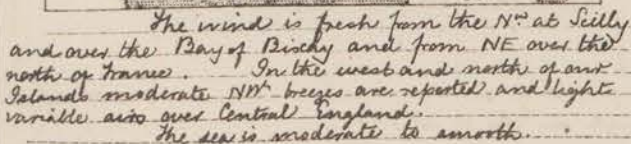 The wind is fresh from the Nrd at Scilly
and over the Bay of Biscay and from NE over the
north of France. In the west and north of our
Islands moderate NWly breezes are reported and light
variable airs over Central England.
The sea is moderate to smooth.